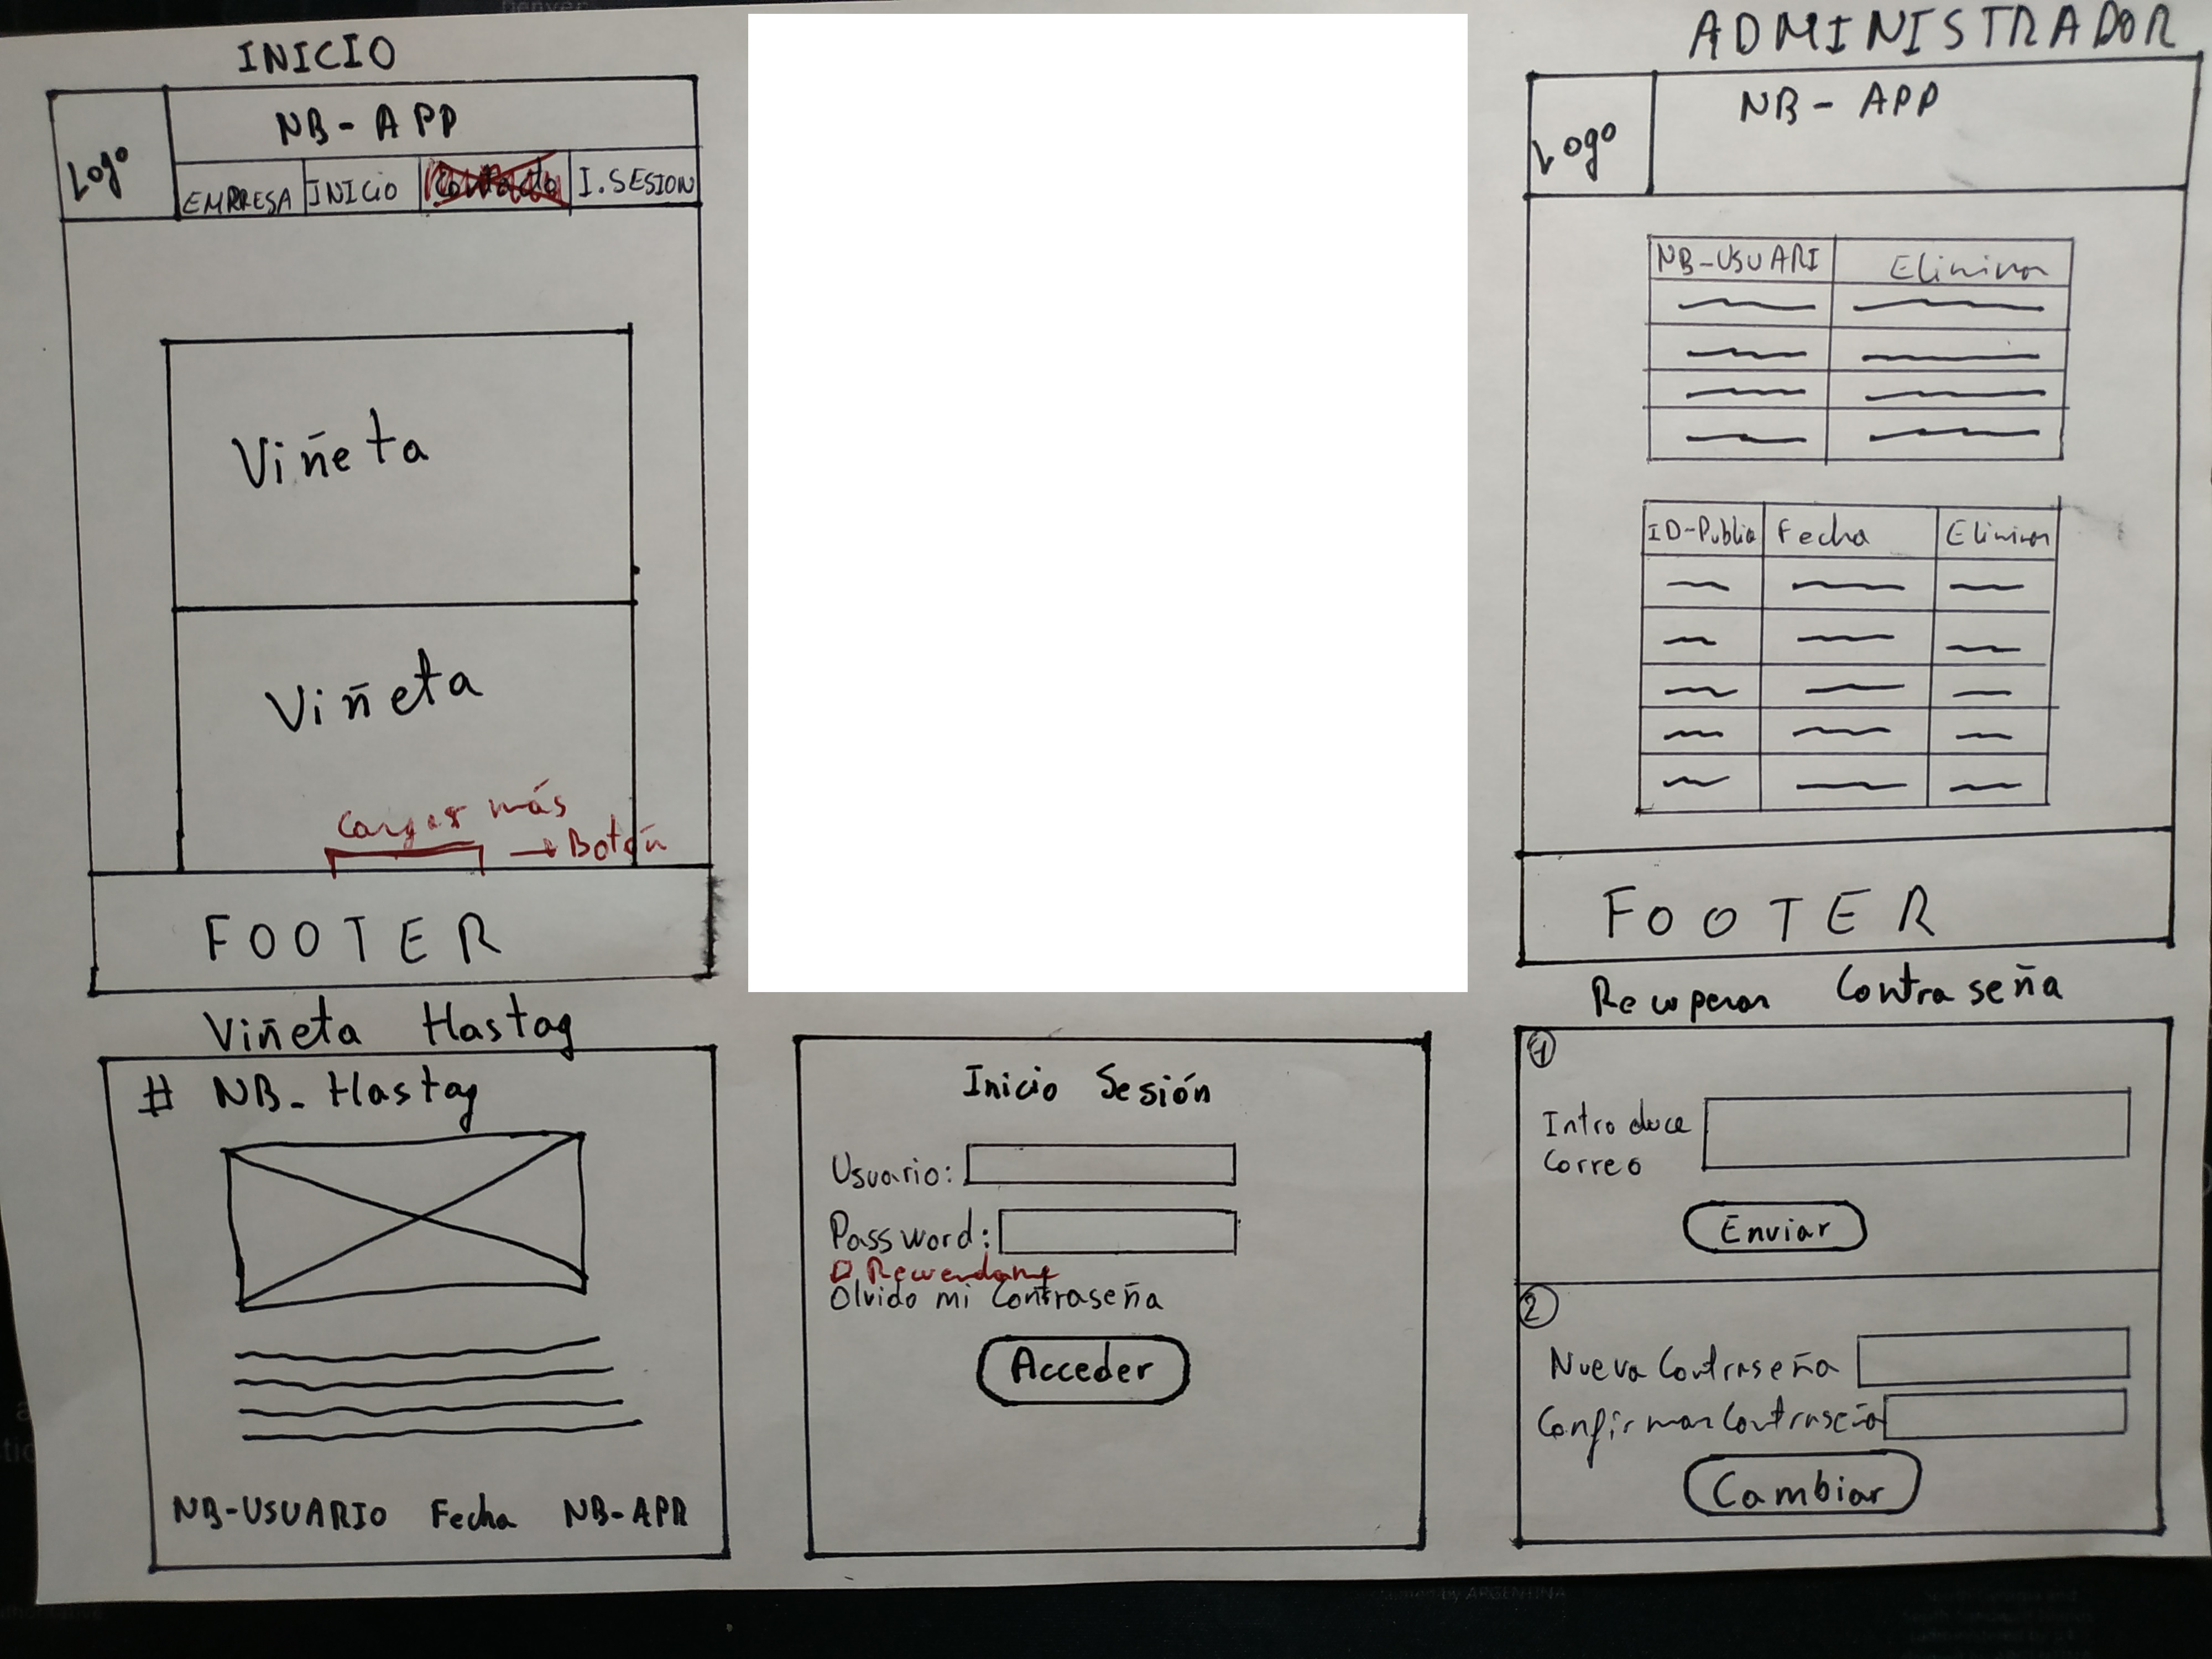 INICIO
NB-APP
Logo
EMPRESA INICIO I.SESION
Viñeta
Viñeta
Cargar más
→ Botón
FOOTER
ADMINISTRADOR
NB-APP
Logo
NB-USUARI Eliminar
ID-Public Fecha Eliminar
FOOTER
Viñeta Hastag
# NB_Hastag
NB-USUARIO Fecha NB-APP
Inicio Sesión
Usuario:
Password:
Recuerdame
Olvido mi Contraseña
Acceder
Recuperar Contraseña
1
Introduce
Correo
Enviar
2
Nueva Contraseña
Confirmar Contraseña
Cambiar